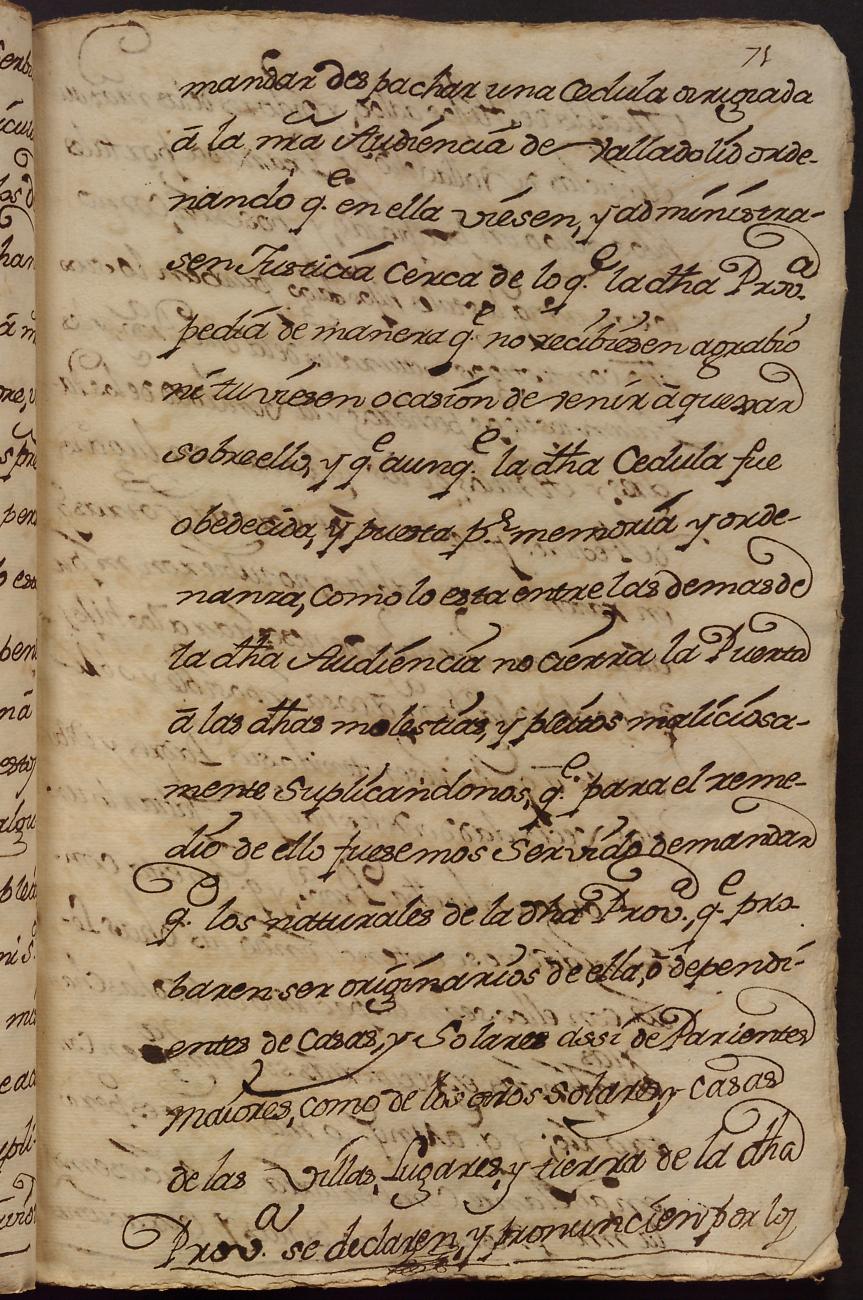 71
mandar despachar una Cedula dirigida
â la nrâ Audiencia de Valladolid orde-
nando q.e en ella viesen, y administra-
sen Justicia cerca de lo q.e la dha Prov.a
pedia de manera q.e no recibiesen agrabio
ni tuviesen ocasion de venir â quexar
sobre ello, y q.e aunq.e la dha Cedula fue
obedecida, y puesta p.r memoria y orde-
nanza, como lo esta entre las demas de
la dha Audiencia no cierra la Puerta
â las dhas molestias, y pleitos maliciosa-
mente suplicandonos, q.e para el reme-
dio de ello fuesemos servido de mandar
q.e los naturales de la dha Prov.a, q.e pro-
baren ser originarios de ella, ô dependi-
entes de Casas, y Solares assi de Parientes
maiores, como de los otros solares, y casas
de las Villas, Lugares, y tierra de la dha
Prov.a se declaren, y pronuncien por los